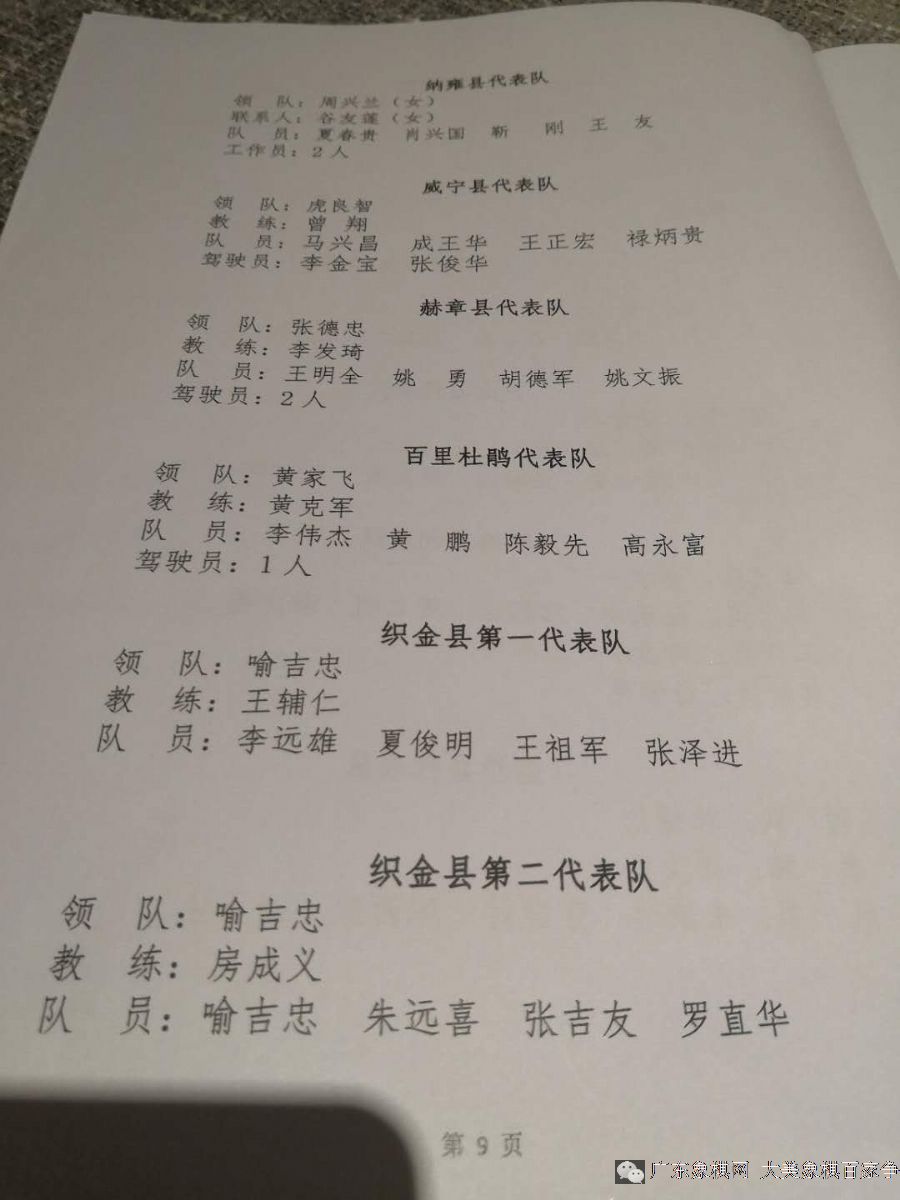 纳雍县代表队
领　队：周兴兰（女）
联系人：谷友莲（女）
队　员：夏春贵　肖兴国　靳　刚　王　友
工作员：2人
威宁县代表队
领　队：虎良智
教　练：曾　翔
队　员：马兴昌　成王华　王正宏　禄炳贵
驾驶员：李金宝　张俊华
赫章县代表队
领　队：张德忠
教　练：李发琦
队　员：王明全　姚　勇　胡德军　姚文振
驾驶员：2人
百里杜鹃代表队
领　队：黄家飞
教　练：黄克军
队　员：李伟杰　黄　鹏　陈毅先　高永富
驾驶员：1人
织金县第一代表队
领　队：喻吉忠
教　练：王辅仁
队　员：李远雄　夏俊明　王祖军　张泽进
织金县第二代表队
领　队：喻吉忠
教　练：房成义
队　员：喻吉忠　朱远喜　张吉友　罗直华
第 9 页
广东象棋网 大美象棋百家争